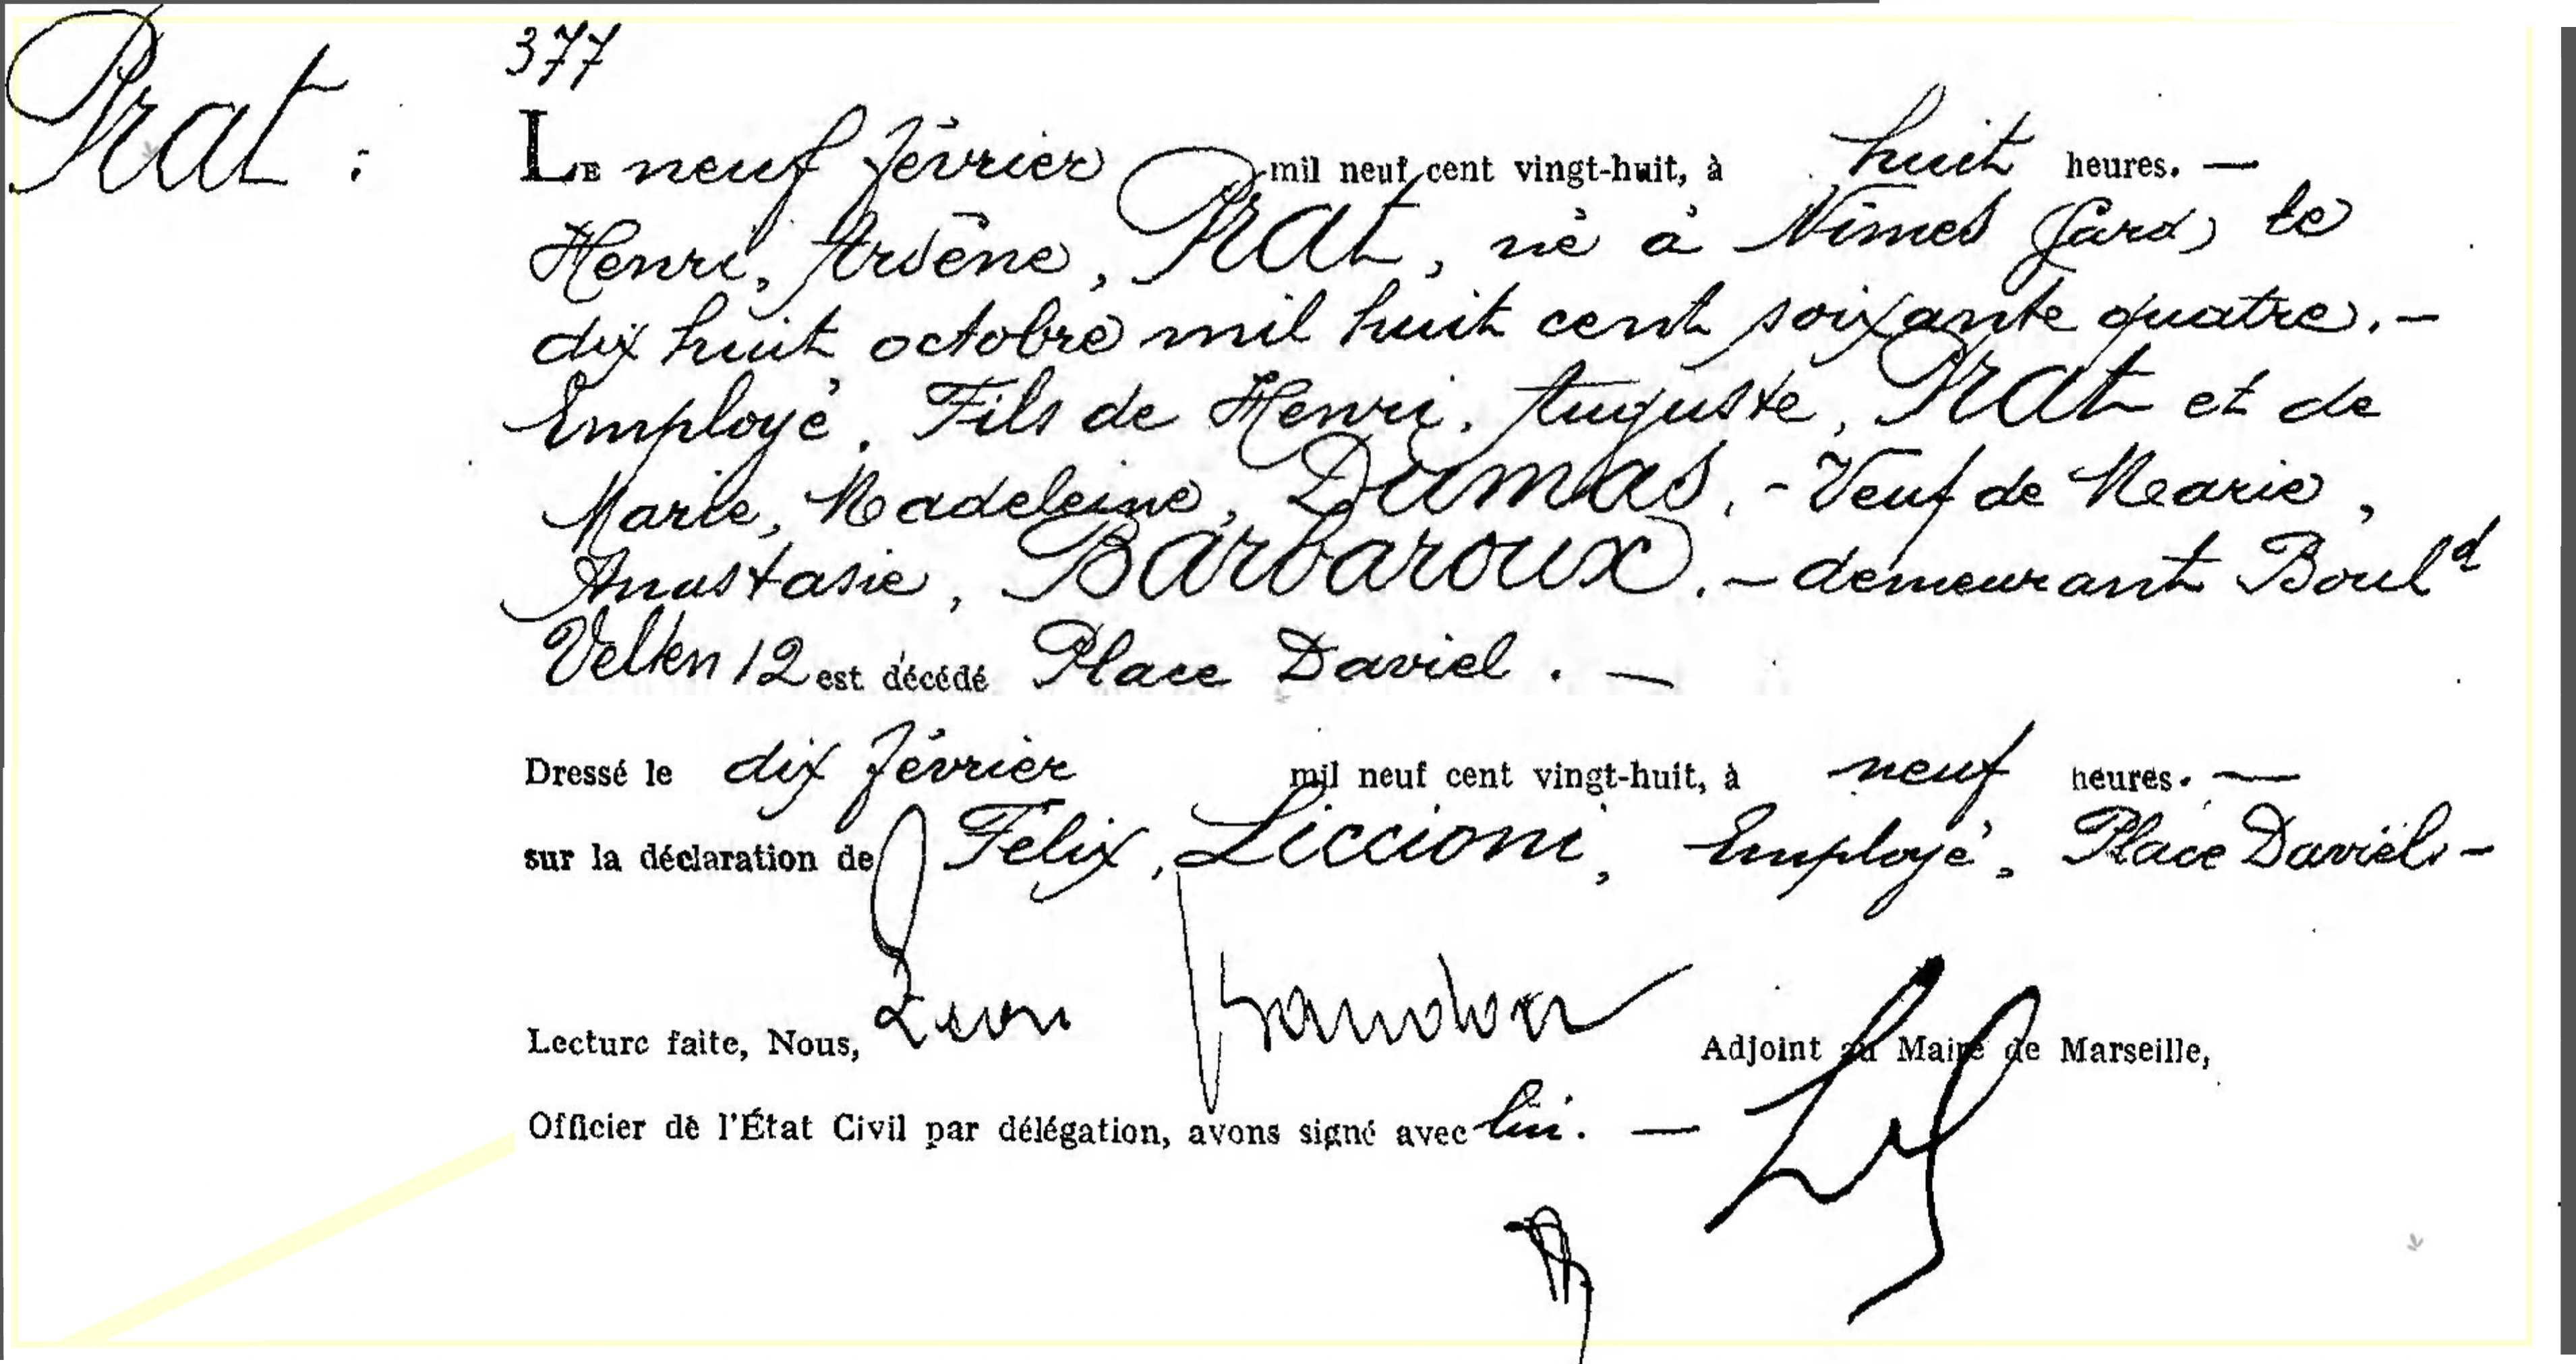 Prat :
377
Le neuf février mil neuf cent vingt-huit, à huit heures. —
Henri, Arsène, Prat, né à Nîmes (Gard) le
dix huit octobre mil huit cent soixante quatre. —
Employé. Fils de Henri, Auguste, Prat et de
Marie, Madeleine, Dumas. - Veuf de Marie,
Anastasie, Barbaroux. — demeurant Boul^d
Velten 12 est décédé Place Daviel. —
Dressé le dix février mil neuf cent vingt-huit, à neuf heures. —
sur la déclaration de Felix, Liccioni, Employé, Place Daviel. -
Lecture faite, Nous, Léon Adjoint au Maire de Marseille,
Officier de l'État Civil par délégation, avons signé avec lui. —